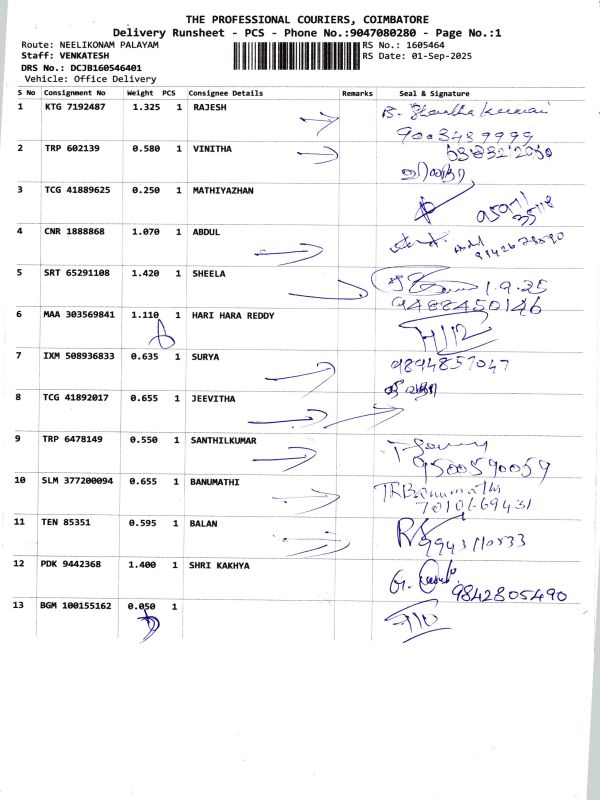 THE PROFESSIONAL COURIERS, COIMBATORE
Delivery Runsheet - PCS - Phone No.:9047080280 - Page No.:1
Route: NEELIKONAM PALAYAM RS No.: 1605464
Staff: VENKATESH RS Date: 01-Sep-2025
DRS No.: DCJB160546401
Vehicle: Office Delivery
S No Consignment No Weight PCS Consignee Details Remarks Seal & Signature
1 KTG 7192487 1.325 1 RAJESH
9003489999
2 TRP 602139 0.580 1 VINITHA
3 TCG 41889625 0.250 1 MATHIYAZHAN
4 CNR 1888868 1.070 1 ABDUL
5 SRT 65291108 1.420 1 SHEELA 1.9.25
9488450146
6 MAA 303569841 1.110 1 HARI HARA REDDY
7 IXM 508936833 0.635 1 SURYA 9894857047
8 TCG 41892017 0.655 1 JEEVITHA
9 TRP 6478149 0.550 1 SANTHILKUMAR
9500590059
10 SLM 377200094 0.655 1 BANUMATHI TRBanumathi
11 TEN 85351 0.595 1 BALAN
12 PDK 9442368 1.400 1 SHRI KAKHYA
9842805490
13 BGM 100155162 0.050 1